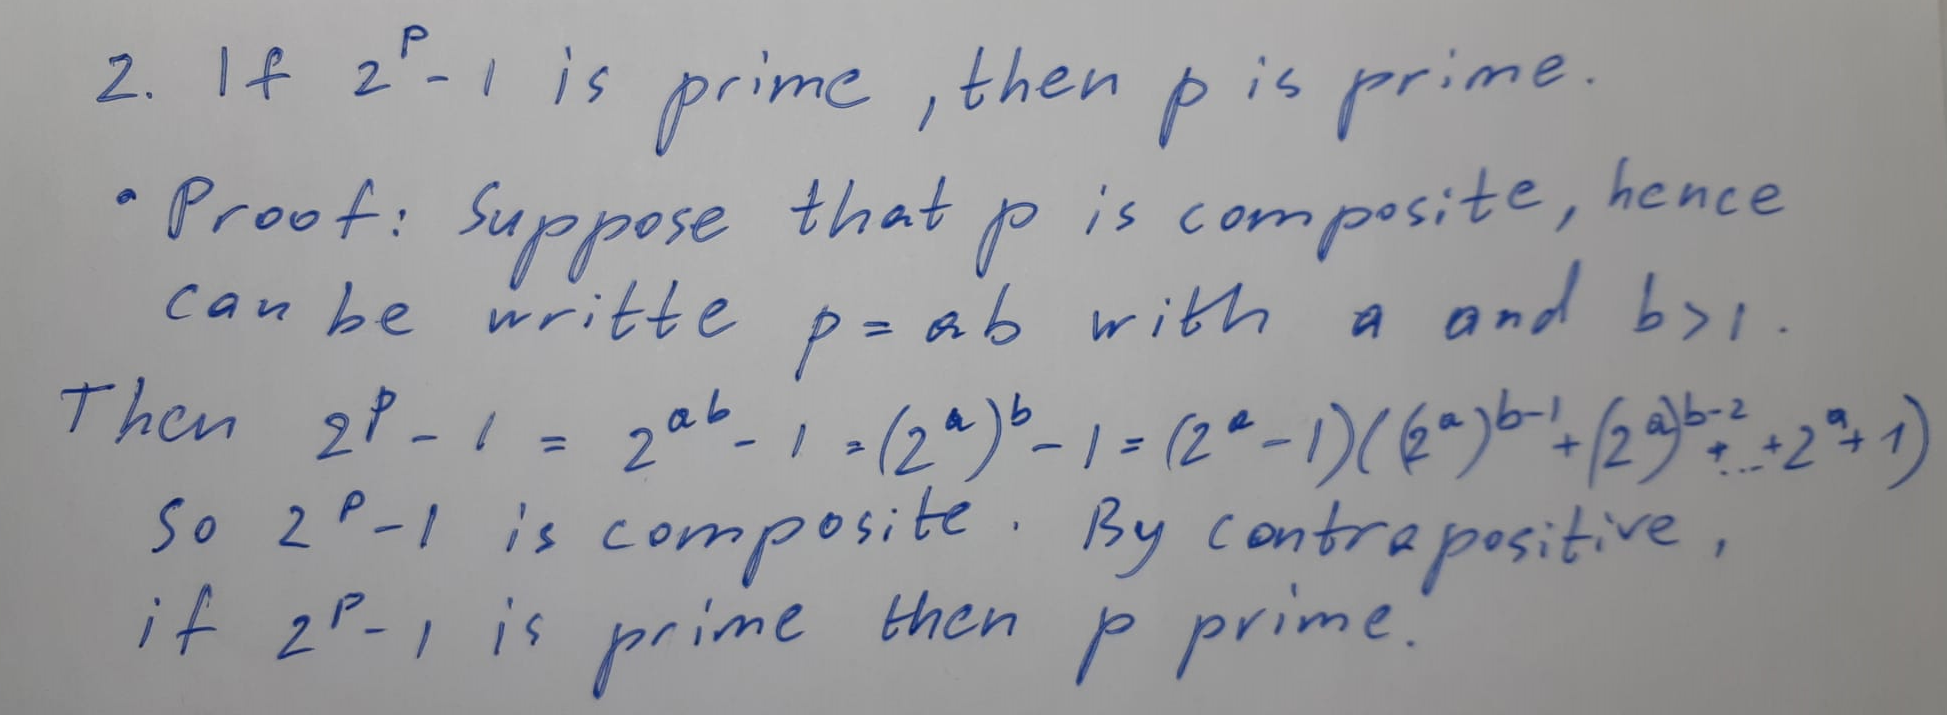 2. If 2^p - 1 is prime, then p is prime.
• Proof: Suppose that p is composite, hence
can be writte p = ab with a and b>1.
Then 2^p - 1 = 2^{ab} - 1 = (2^a)^b - 1 = (2^a - 1)((2^a)^{b-1} + (2^a)^{b-2} + ... + 2^a + 1)
So 2^p - 1 is composite. By contrapositive,
if 2^p - 1 is prime then p prime.